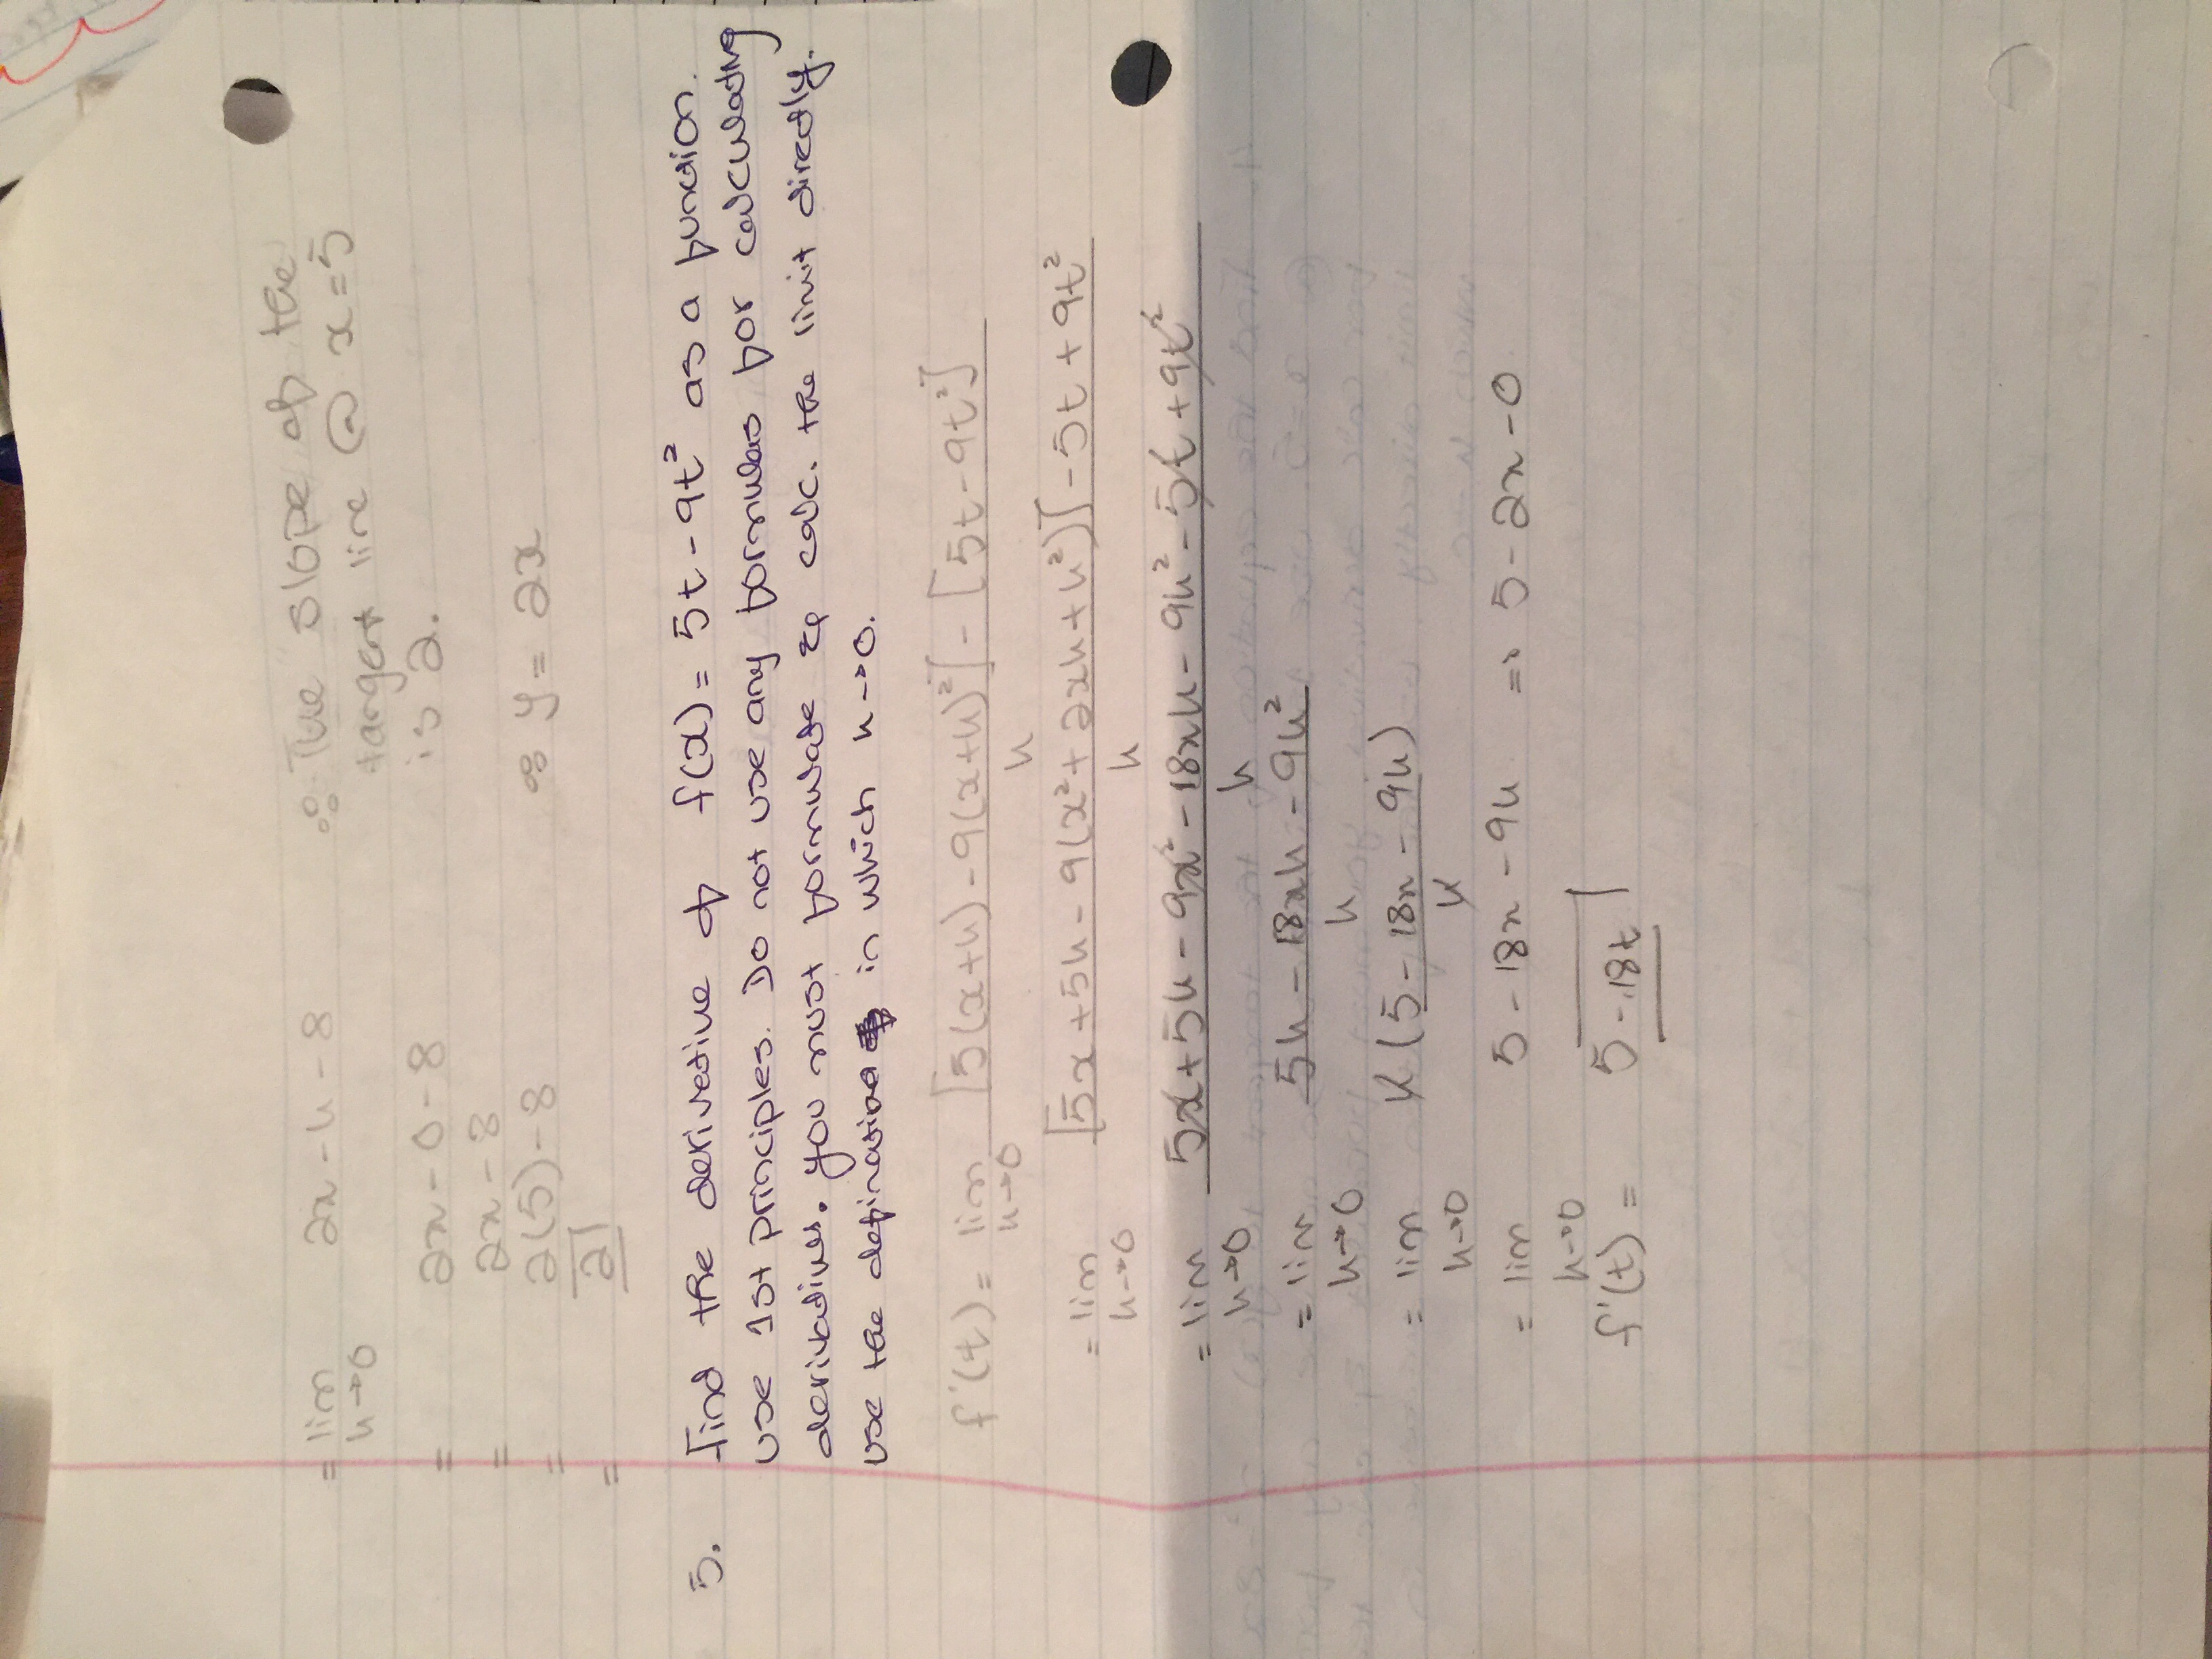 = lim 2x - h - 8 ∴ The slope of the
h→0 tangent line @ x=5
= 2x - 0 - 8 is 2.
= 2x - 8
= 2(5) - 8 ∴ y = 2x
= 2
5. Find the derivative of f(x) = 5t - 9t² as a function.
use 1st principles. Do not use any formulas for calculating
derivatives. You must formulate & calc. the limit directly.
use the defination in which h→0.
f'(t) = lim [5(x+h) - 9(x+h)²] - [5t - 9t²]
h→0 h
= lim [5x + 5h - 9(x² + 2xh + h²)] - 5t + 9t²
h→0 h
= lim 5x + 5h - 9x² - 18xh - 9h² - 5t + 9t²
h→0 h
= lim 5h - 18xh - 9h²
h→0 h
= lim h(5 - 18x - 9h)
h→0 h
= lim 5 - 18x - 9h => 5 - 2x - 0
h→0
f'(t) = 5 - 18t